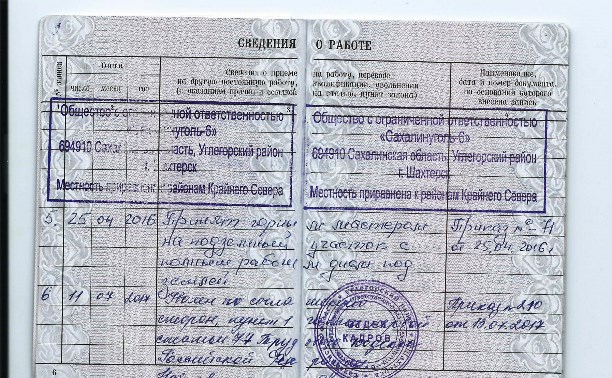 СВЕДЕНИЯ О РАБОТЕ
№ записи
Дата
число месяц год
Сведения о приеме на работу, переводе
на другую постоянную работу, квалификации, увольнении
(с указанием причин и ссылкой на статью, пункт закона)
Наименование,
дата и номер документа,
на основании которого
внесена запись
Общество с ной ответственностью
уголь-6»
694910 Саха асть, Углегорский район
хтерск
Местность приравнена районам Крайнего Севера
Общество с ограниченной ответственностью
«Сахалинуголь-6»
694910 Сахалинская область, Углегорский район
г. Шахтерск
Местность приравнена к районам Крайнего Севера
5 25 04 2016 Принят горным мастером Приказ №
на подземный участок с от 25.04.2016г
полным рабочим днем под
землей
6 11 07 2017 Уволен по соглашению Приказ 210
сторон, пункт 1 от 07.2017
статьи 77 Труд
Российской
ОТДЕЛ
КАДРОВ
6